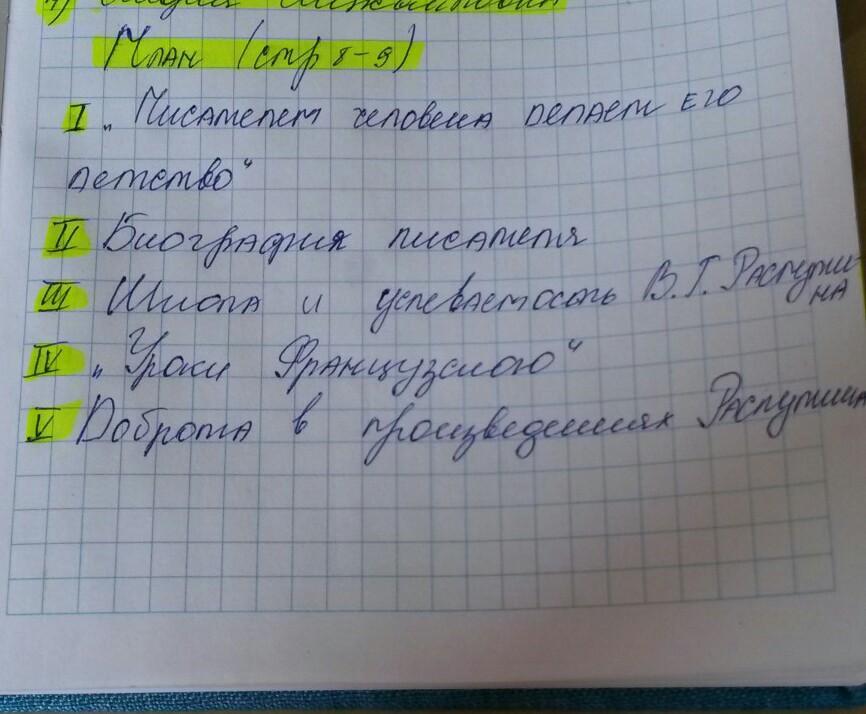 План (стр 8-9)
I „Писателем человека делает его
детство“
II Биография писателя
III Школа и успеваемость В.Г. Распути-
на
IV „Уроки Французского“
V Доброта в произведениях Распутина